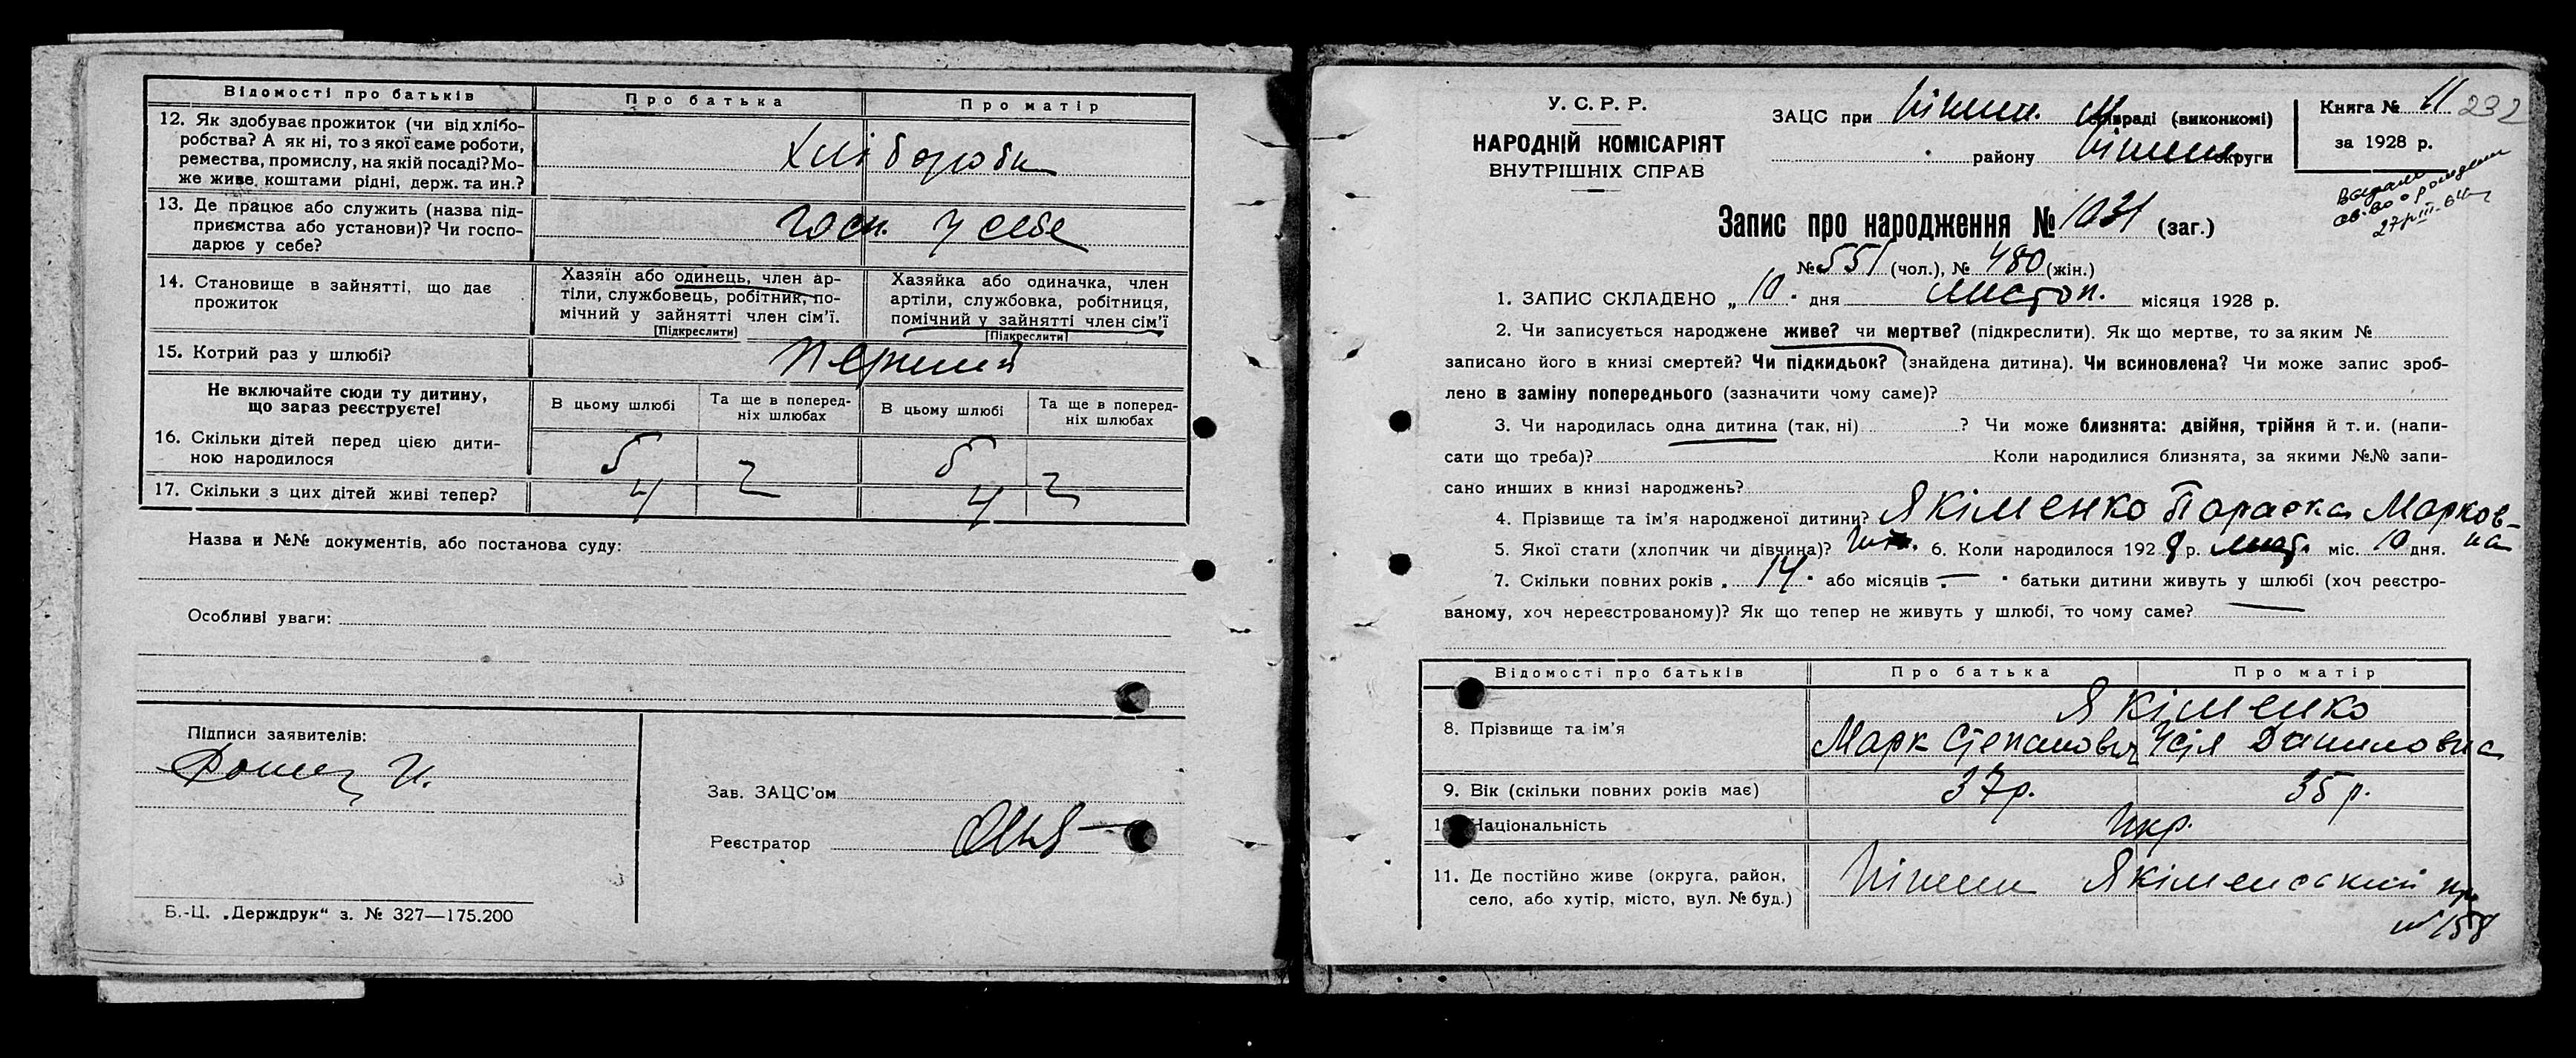 Відомості про батьків | Про батька | Про матір
12. Як здобуває прожиток (чи від хлібо-
робства? А як ні, то з якої саме роботи,
ремества, промислу, на якій посаді? Мо-
же живе коштами рідні, держ. та ин.?
Хлібороби
13. Де працює або служить (назва під-
приємства або установи)? Чи госпо-
дарює у себе?
госп. у себе
14. Становище в зайнятті, що дає
прожиток
Хазяїн або одинець, член ар-
тіли, службовець, робітник, по-
мічний у зайнятті член сім’ї.
[Підкреслити]
Хазяйка або одиначка, член
артіли, службовка, робітниця,
помічний у зайнятті член сім’ї
[Підкреслити]
15. Котрий раз у шлюбі?
Перший
Не включайте сюди ту дитину,
що зараз реєструєте!
В цьому шлюбі | Та ще в поперед-
ніх шлюбах | В цьому шлюбі | Та ще в поперед-
ніх шлюбах
16. Скільки дітей перед цією дити-
ною народилося
5 5
17. Скільки з цих дітей живі тепер?
4 4
Назва и №№ документів, або постанова суду:
Особливі уваги:
Підписи заявителів:
Зав. ЗАЦС’ом
Реєстратор
Б.-Ц. „Держдрук“ з. № 327—175.200
У. С. Р. Р.
НАРОДНІЙ КОМІСАРІЯТ
ВНУТРІШНІХ СПРАВ
ЗАЦС при Ніжин. М сільраді (виконкомі)
району Ніжин округи
Книга № 11 232
за 1928 р.
Выдано
св-во о рождении
Запис про народження № 1031 (заг.)
№ 551 (чол.), № 480 (жін.)
1. ЗАПИС СКЛАДЕНО „ 10 " дня листоп. місяця 1928 р.
2. Чи записується народжене живе? чи мертве? (підкреслити). Як що мертве, то за яким №
записано його в книзі смертей? Чи підкидьок? (знайдена дитина). Чи всиновлена? Чи може запис зроб-
лено в заміну попереднього (зазначити чому саме)?
3. Чи народилась одна дитина (так, ні) ? Чи може близнята: двійня, трійня й т. и. (напи-
сати що треба)? Коли народилися близнята, за якими №№ запи-
сано инших в книзі народжень?
4. Прізвище та ім’я народженої дитини? Якіменко Параска Марков-
на
5. Якої стати (хлопчик чи дівчина)? 6. Коли народилося 1928 р. лист. міс. 10 дня.
7. Скільки повних років „ 14 " або місяців „ — " батьки дитини живуть у шлюбі (хоч реєстро-
ваному, хоч нереєстрованому)? Як що тепер не живуть у шлюбі, то чому саме? —
Відомості про батьків | Про батька | Про матір
8. Прізвище та ім’я
Якіменко
Марк Степанович Устя Даниловна
9. Вік (скільки повних років має) 37р. 35р.
Національність Укр.
11. Де постійно живе (округа, район,
село, або хутір, місто, вул. № буд.)
Ніжин Якіменський пр.
№ 158